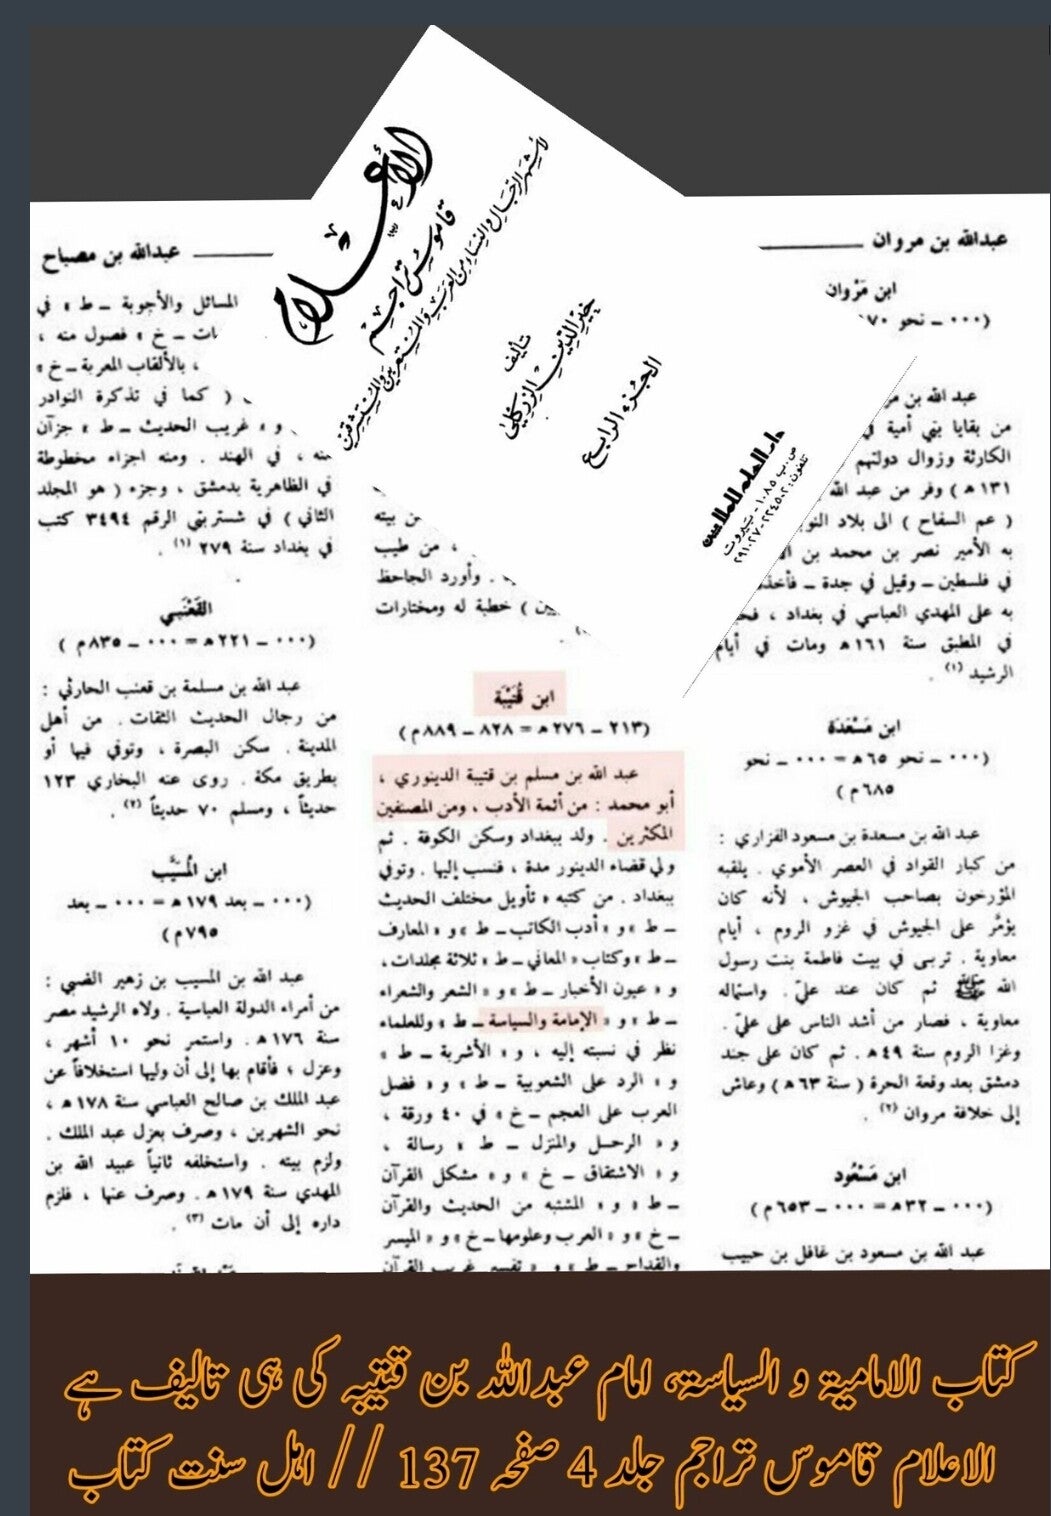 الأعلام
قاموس تراجم
لأشهر الرجال والنساء من العرب والمستعربين والمستشرقين
تأليف
خير الدين الزركلي
الجزء الرابع
دار العلم للملايين
ص.ب ١٠٨٥ - بيروت
تلفون: ٢٢٤٥٠٢ - ٢٩١٠٢٧
عبدالله بن مروان
ابن مَرْوان
(٠٠٠ ـ نحو
عبد الله بن
من بقايا بني أمية في
الكارثة وزوال دولتهم
١٣١ هـ ) وفر من عبد الله
( عم السفاح ) الى بلاد
به الأمير نصر بن محمد بن
في فلسطين ـ وقيل في جدة ـ
به على المهدي العباسي في بغداد ،
في المطبق سنة ١٦١ هـ ومات في أيام
الرشيد (١) .
ابن مَسْعَدَة
(٠٠٠ ـ نحو ٦٥ هـ = ٠٠٠ ـ نحو
٦٨٥ م )
عبد الله بن مسعدة بن مسعود الفزاري :
من كبار القواد في العصر الأموي . يلقبه
المؤرخون بصاحب الجيوش ، لأنه كان
يؤمَّر على الجيوش في غزو الروم ، أيام
معاوية . تربى في بيت فاطمة بنت رسول
الله ﷺ ثم كان عند عليّ . واستماله
معاوية ، فصار من أشد الناس على عليّ .
وغزا الروم سنة ٤٩ هـ . ثم كان على جند
دمشق بعد وقعة الحرة ( سنة ٦٣ هـ ) وعاش
إلى خلافة مروان (٢) .
ابن مَسْعُود
(٠٠٠ ـ ٣٢ هـ = ٠٠٠ ـ ٦٥٣ م )
عبد الله بن مسعود بن غافل بن حبيب
من بيته
، من طيب
. وأورد الجاحظ
) خطبة له ومختارات
ابن قُتَيْبَة
(٢١٣ ـ ٢٧٦ هـ = ٨٢٨ ـ ٨٨٩ م )
عبد الله بن مسلم بن قتيبة الدينوري ،
أبو محمد : من أئمة الأدب ، ومن المصنفين
المكثرين . ولد ببغداد وسكن الكوفة . ثم
ولي قضاء الدينور مدة ، فنسب إليها . وتوفي
ببغداد . من كتبه « تأويل مختلف الحديث
ـ ط » و « أدب الكاتب ـ ط » و « المعارف
ـ ط » وكتاب « المعاني ـ ط » ثلاثة مجلدات ،
و « عيون الأخبار ـ ط » و « الشعر والشعراء
ـ ط » و « الإمامة والسياسة ـ ط » وللعلماء
نظر في نسبته إليه ، و « الأشربة ـ ط »
و « الرد على الشعوبية ـ ط » و « فضل
العرب على العجم ـ خ » في ٤٠ ورقة ،
و « الرحل والمنزل ـ ط » رسالة ،
و « الاشتقاق ـ خ » و « مشكل القرآن
ـ ط » و « المشتبه من الحديث والقرآن
ـ خ » و « العرب وعلومها ـ خ » و « الميسر
والقداح ـ ط » و « تفسير غريب القرآن
عبدالله بن مصباح
المسائل والأجوبة ـ ط » في
ـ خ » فصول منه ،
، بالألقاب المعربة ـ خ »
( كما في تذكرة النوادر
و « غريب الحديث ـ ط » جزآن
منه ، في الهند . ومنه اجزاء مخطوطة
في الظاهرية بدمشق ، وجزء ( هو المجلد
الثاني ) في شستربتي الرقم ٣٤٩٤ كتب
في بغداد سنة ٢٧٩ (١) .
القَعْنَبي
(٠٠٠ ـ ٢٢١ هـ = ٠٠٠ ـ ٨٣٥ م )
عبد الله بن مسلمة بن قعنب الحارثي :
من رجال الحديث الثقات . من أهل
المدينة . سكن البصرة ، وتوفي فيها أو
بطريق مكة . روى عنه البخاري ١٢٣
حديثاً ، ومسلم ٧٠ حديثاً (٢) .
ابن المُسَيَّب
(٠٠٠ ـ بعد ١٧٩ هـ = ٠٠٠ ـ بعد
٧٩٥ م )
عبد الله بن المسيب بن زهير الضبي :
من أمراء الدولة العباسية . ولاه الرشيد مصر
سنة ١٧٦ هـ . واستمر نحو ١٠ أشهر ،
وعزل ؛ فأقام بها إلى أن وليها استخلافاً عن
عبد الملك بن صالح العباسي سنة ١٧٨ هـ ،
نحو الشهرين ، وصرف بعزل عبد الملك .
ولزم بيته . واستخلفه ثانياً عبيد الله بن
المهدي سنة ١٧٩ هـ . وصرف عنها ، فلزم
داره إلى أن مات (٣) .
کتاب الامامیة و السیاسة، امام عبداللہ بن قتیبہ کی ہی تالیف ہے
الاعلام قاموس تراجم جلد 4 صفحہ 137 // اہل سنت کتاب